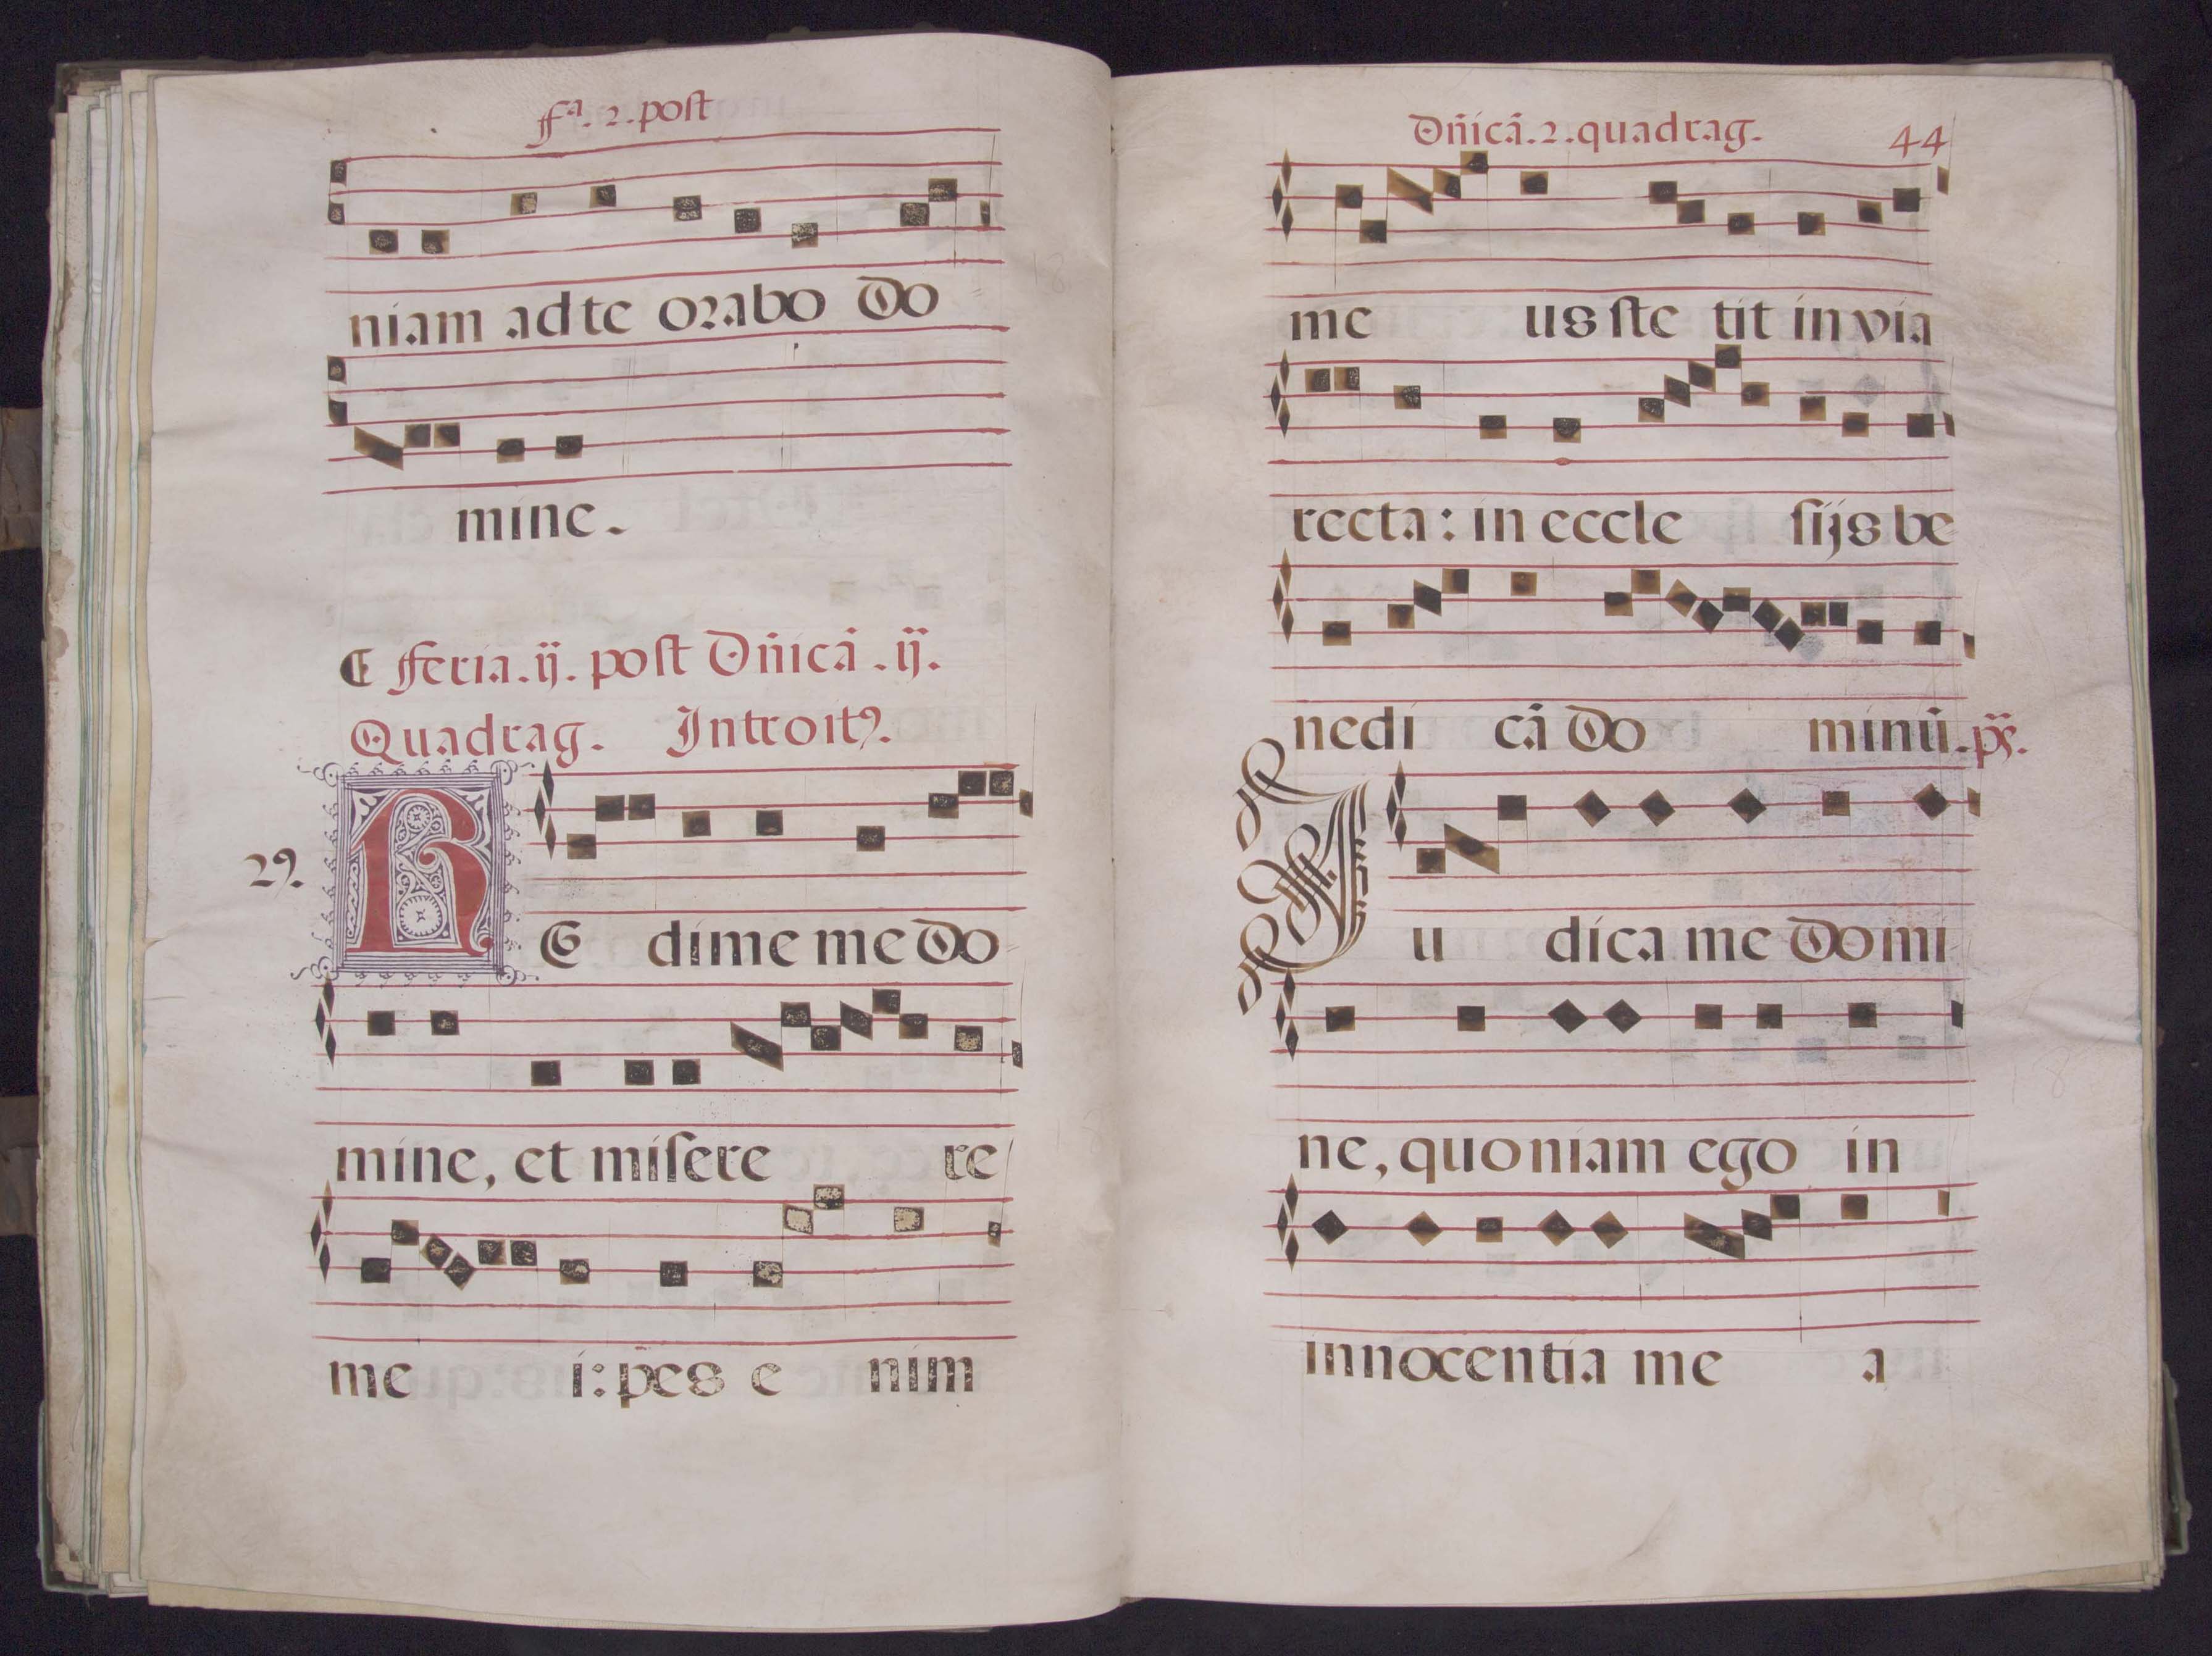 ffª. 2. post
niam ad te orabo do
mine.
¶ fferia. ij. post Dñicã. ij.
Quadrag. Introitꝯ.
29.
RE dime me Do
mine, et misere re
me i: pes e nim
Dñicã. 2. quadrag. 44
me us ste tit in via
recta: in eccle sijs be
nedi cã do minũ. ps.
Iu dica me Domi
ne, quoniam ego in
innocentia me a